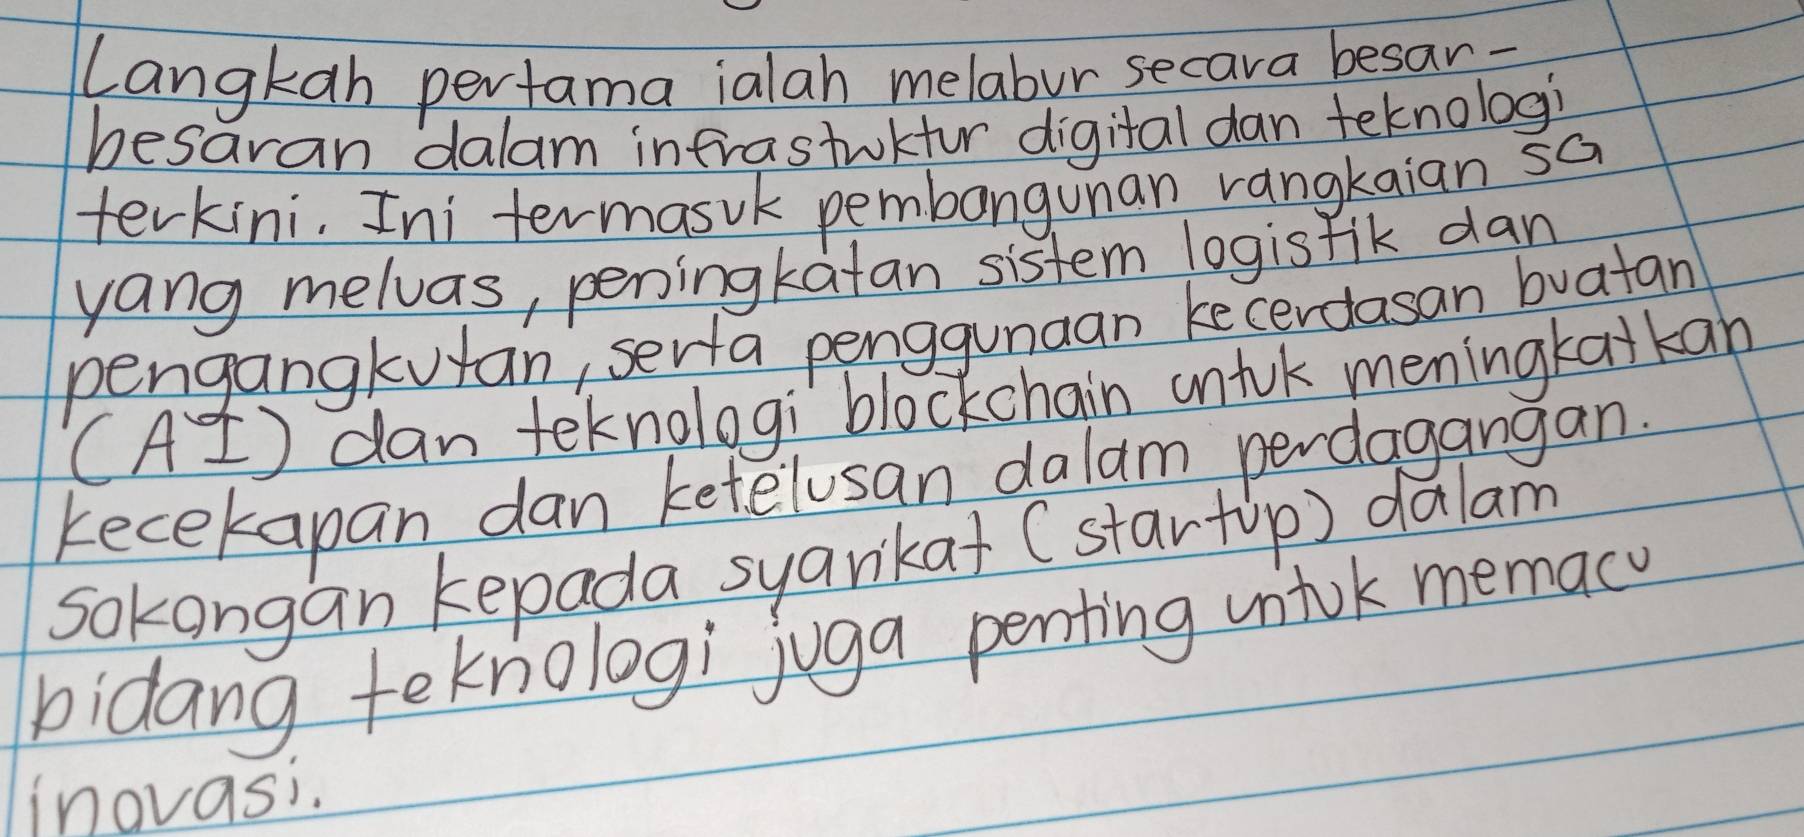 Langkah pertama ialah melabur secara besar-
besaran dalam infrastruktur digital dan teknologi
terkini. Ini termasuk pembangunan rangkaian 5G
yang meluas, peningkatan sistem logistik dan
pengangkutan, serta penggunaan kecerdasan buatan
(AI) dan teknologi blockchain untuk meningkatkan
kecekapan dan ketelusan dalam perdagangan.
Sokongan kepada syarikat (startup) dalam
bidang teknologi juga penting untuk memacu
inovasi.